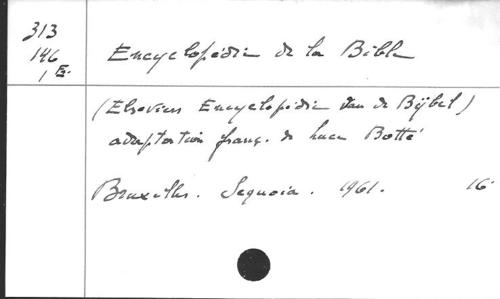 313
146
1 E.
Encyclopédie de la Bible
(Elseviers Encyclopédie van de Bijbel)
adaptation franç. de Luce Botté
Bruxelles. Sequoia. 1961. 16°